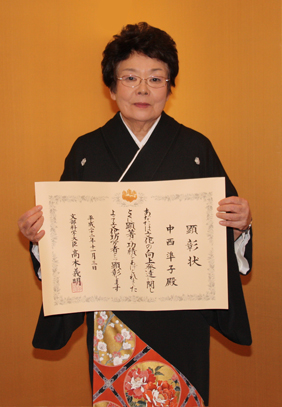 顕彰状
中西準子殿
あなたは文化の向上発達に関し
とくに顕著な功績をあげられました
よって文化功労者として顕彰します
平成二十二年十一月三日
文部科学大臣 高木義明